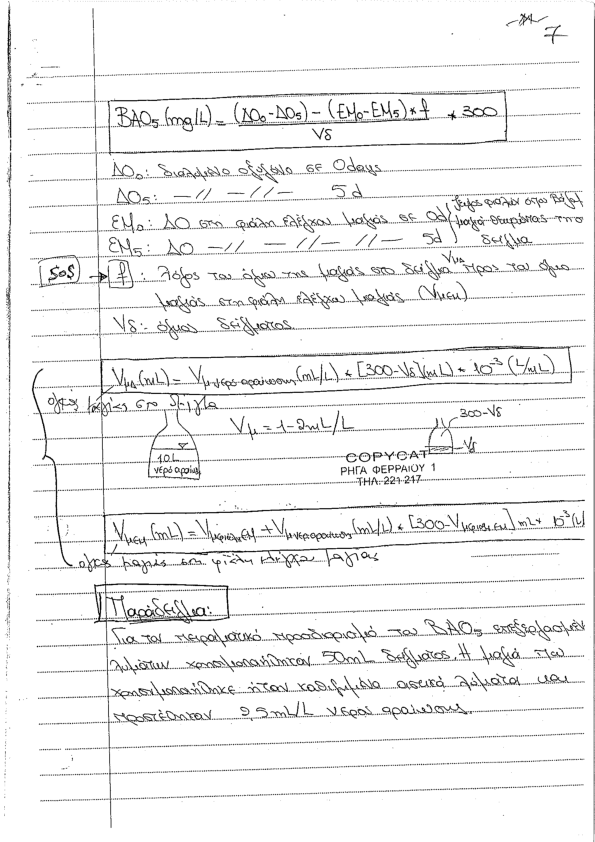 7
BAO₅ (mg/L) = (ΔO₀-ΔO₅) - (EM₀-EM₅) * f / Vδ * 300
ΔO₀: διαλυμένο οξυγόνο σε 0days
ΔO₅: —//— —//— 5d
EM₀: ΔO στη φιάλη ελέγχου μαγιάς σε 0d
EM₅: ΔO —//— —//— //— 5d
δείγμα
SOS → f : λόγος του όγκου της μαγιάς στο δείγμα VμΔ προς τον όγκο
μαγιάς στη φιάλη ελέγχου μαγιάς (VμEM)
Vδ: όγκος δείγματος.
VμΔ (mL) = Vμ νερό αραίωσης (mL/L) * [300-Vδ] (mL) * 10⁻³ (L/mL)
όγκος μαγιάς στο δείγμα
Vμ = 1-2mL/L
300-Vδ
Vδ
1.0L
νερό αραίωσης
COPYCAT
ΡΗΓΑ ΦΕΡΡΑΙΟΥ 1
ΤΗΛ. 221 217
VμEM (mL) = + (mL/L) * [300- ] mL * 10⁻³ (L/
όγκος μαγιάς στη φιάλη ελέγχου μαγιάς
Παράδειγμα:
Για τον πειραματικό προσδιορισμό του BAO₅ επεξεργασμέν
λυμάτων χρησιμοποιήθηκαν 50mL δείγματος. Η μαγιά που
χρησιμοποιήθηκε ήταν καθιζημένα αστικά λύματα και
προστέθηκαν 2,5mL/L νερού αραίωσης.